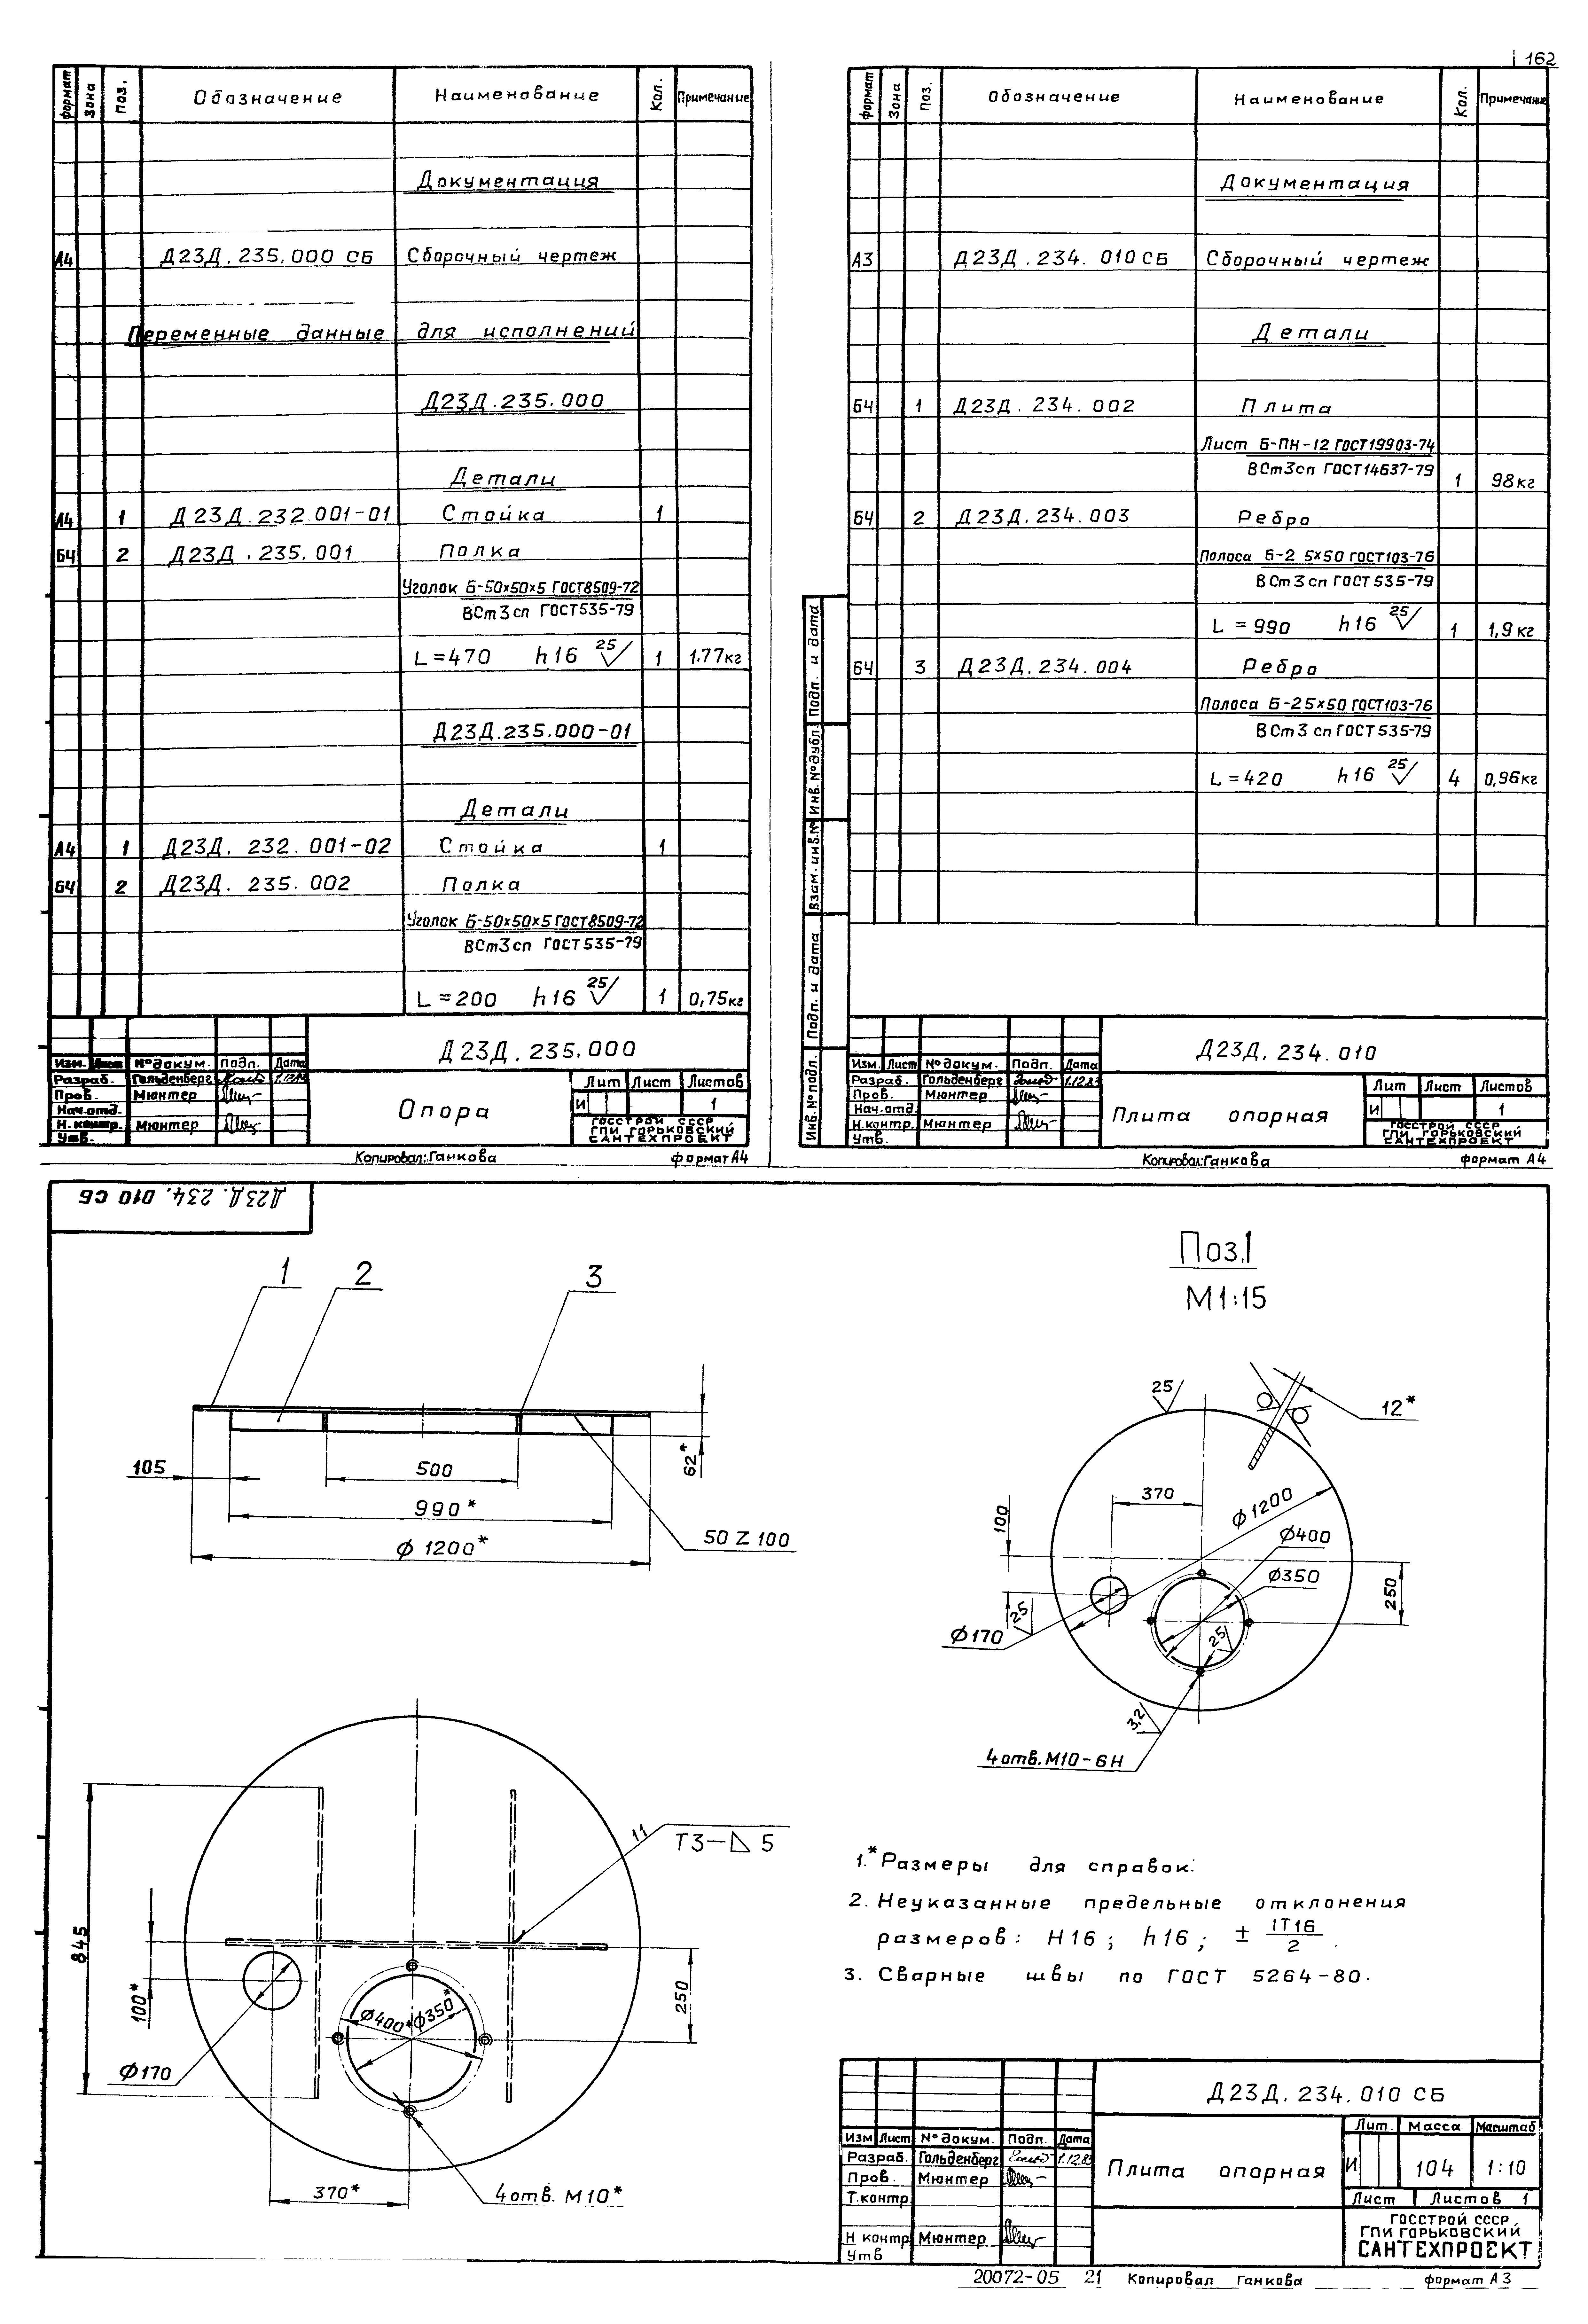 162
формат Зона Поз. Обозначение Наименование Кол. Примечание
Документация
А4 Д23Д.235.000 СБ Сборочный чертеж
Переменные данные для исполнений
Д23Д.235.000
Детали
А4 1 Д23Д.232.001-01 Стойка 1
БЧ 2 Д23Д.235.001 Полка
Уголок Б-50х50х5 ГОСТ8509-72
ВСт3сп ГОСТ535-79
L=470 h16 25 1 1.77кг
Д23Д.235.000-01
Детали
А4 1 Д23Д.232.001-02 Стойка 1
БЧ 2 Д23Д.235.002 Полка
Уголок Б-50х50х5 ГОСТ8509-72
ВСт3сп ГОСТ535-79
L=200 h16 25 1 0,75кг
Д23Д.235.000
Изм. Лист №докум. Подп. Дата
Разраб. Гольденберг 1.12.83
Пров. Мюнтер
Нач.отд.
Н.контр. Мюнтер
Утв.
Опора
Лит Лист Листов
И 1
ГОССТРОЙ СССР
ГПИ ГОРЬКОВСКИЙ
САНТЕХПРОЕКТ
Копировал: Ганкова формат А4
формат Зона Поз. Обозначение Наименование Кол. Примечание
Документация
А3 Д23Д.234.010 СБ Сборочный чертеж
Детали
БЧ 1 Д23Д.234.002 Плита
Лист Б-ПН-12 ГОСТ19903-74
ВСт3сп ГОСТ14637-79
1 98кг
БЧ 2 Д23Д.234.003 Ребро
Полоса Б-2 5х50 ГОСТ103-76
ВСт3сп ГОСТ535-79
L=990 h16 25 1 1,9кг
БЧ 3 Д23Д.234.004 Ребро
Полоса Б-25х50 ГОСТ103-76
ВСт3сп ГОСТ535-79
L=420 h16 25 4 0,96кг
Подп. и дата
Инв.№дубл.
Взам.инв.№
Подп. и дата
Инв.№подл.
Д23Д.234.010
Изм. Лист №докум. Подп. Дата
Разраб. Гольденберг 1.12.83
Пров. Мюнтер
Нач.отд.
Н.контр. Мюнтер
Утв.
Плита опорная
Лит Лист Листов
И 1
ГОССТРОЙ СССР
ГПИ ГОРЬКОВСКИЙ
САНТЕХПРОЕКТ
Копировал: Ганкова формат А4
Д23Д.234.010 СБ
1 2 3
62*
105
500
990*
ϕ 1200*
50 Z 100
Поз.1
М1:15
25
12*
370
100
ϕ1200
ϕ400
ϕ350
250
25
ϕ170
25
3,2
4отв.М10-6Н
11
Т3-◺ 5
845
100*
250
ϕ400*
ϕ350*
ϕ170
370*
4отв. М10*
1.*Размеры для справок.
2. Неуказанные предельные отклонения
размеров: Н16; h16; ± IT16/2.
3. Сварные швы по ГОСТ 5264-80.
Д23Д.234.010 СБ
Изм Лист №докум. Подп. Дата
Разраб. Гольденберг 1.12.83
Пров. Мюнтер
Т.контр.
Н контр Мюнтер
Утв
Плита опорная
Лит. Масса Масштаб
И 104 1:10
Лист Листов 1
ГОССТРОЙ СССР
ГПИ ГОРЬКОВСКИЙ
САНТЕХПРОЕКТ
20072-05 21 Копировал Ганкова формат А3